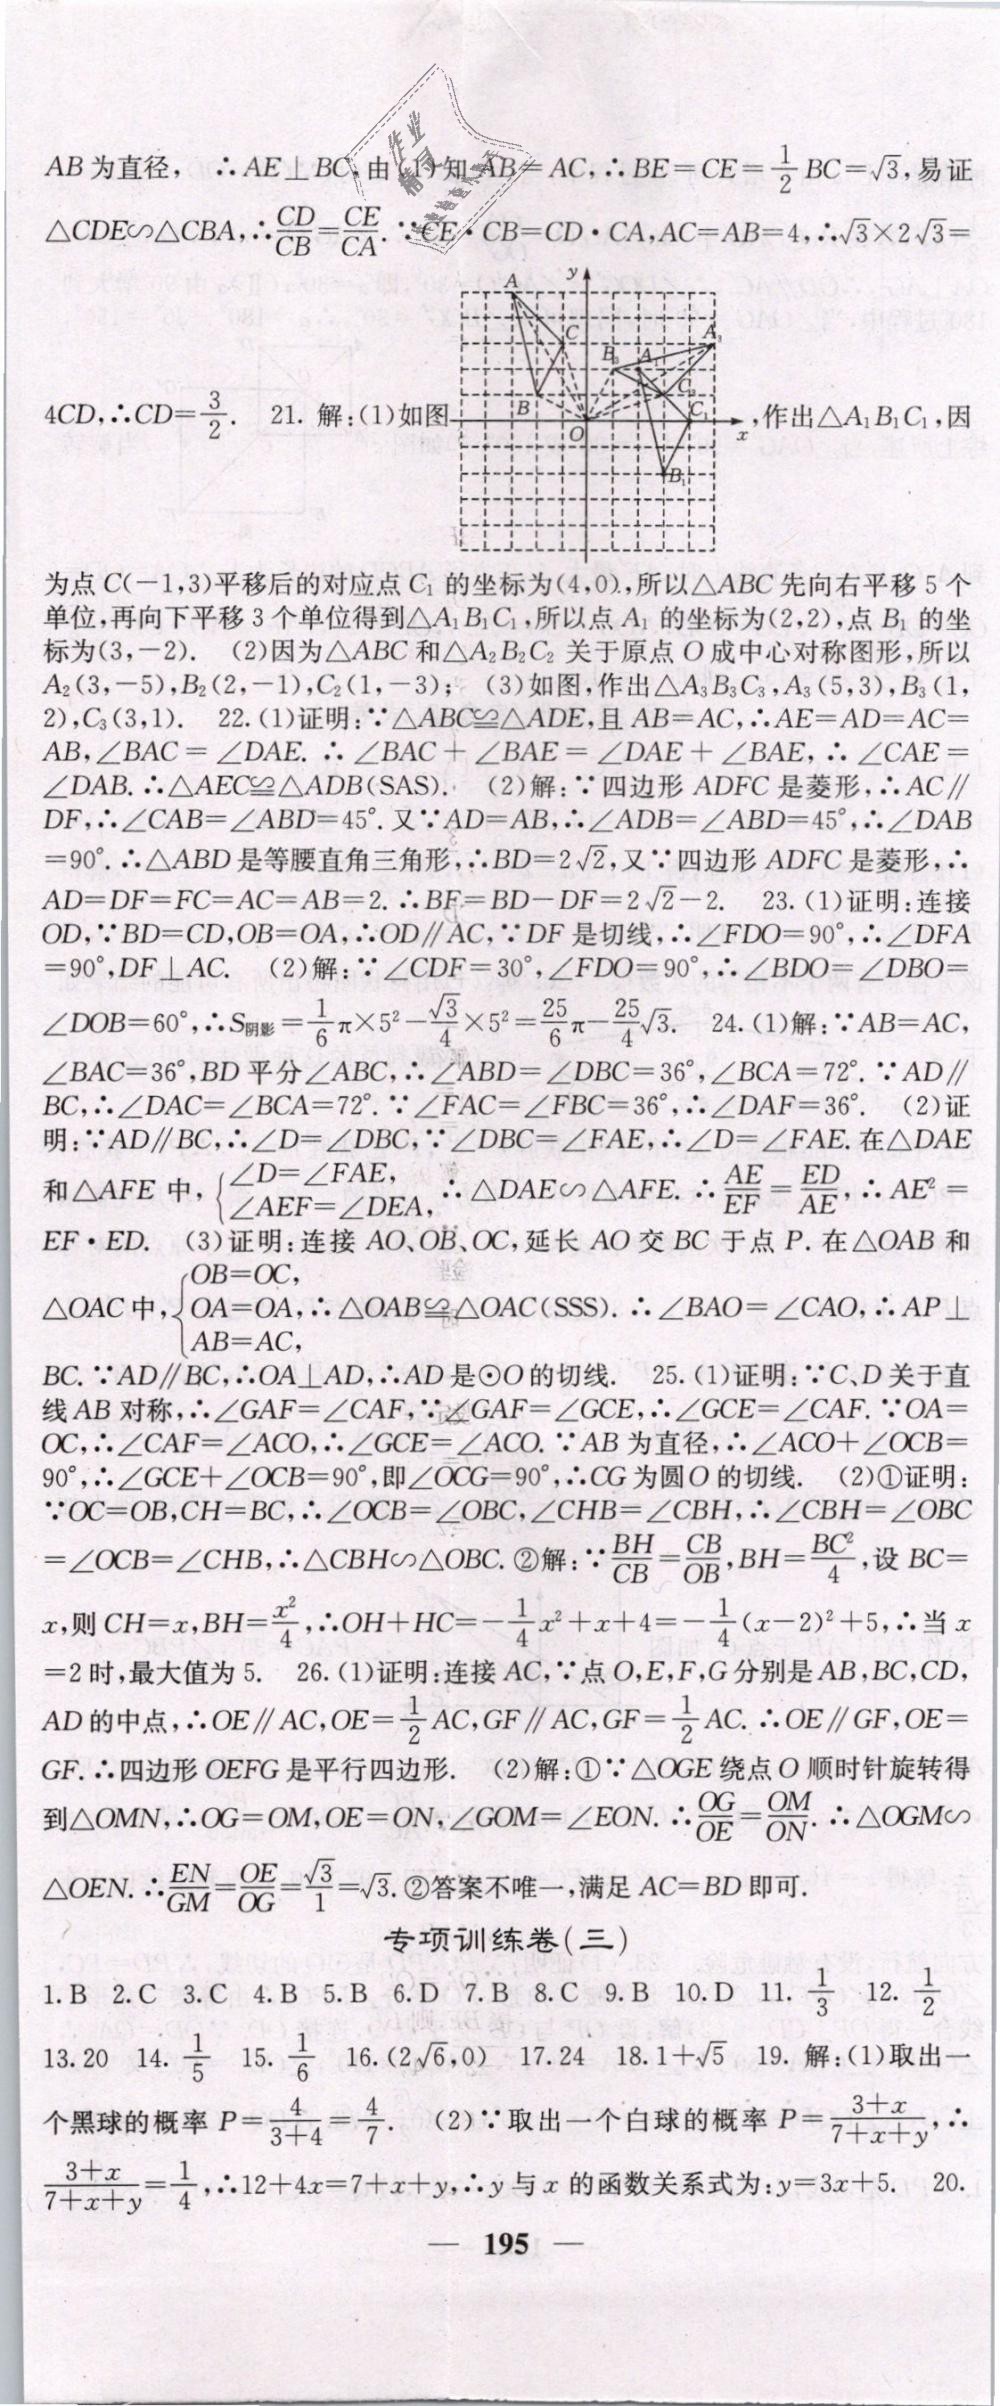 AB为直径, ∴AE⊥BC,由(1)知AB=AC,∴BE=CE=1/2 BC=√3,易证
△CDE∽△CBA,∴CD/CB=CE/CA.∵CE·CB=CD·CA,AC=AB=4,∴√3×2√3=
4CD,∴CD=3/2. 21. 解:(1)如图 ,作出△A₁B₁C₁,因
y
A
C
B
O
x
B₃
A₁
A₃
C₃
C₁
B₁
为点C(-1,3)平移后的对应点C₁的坐标为(4,0),所以△ABC先向右平移5个
单位,再向下平移3个单位得到△A₁B₁C₁,所以点A₁的坐标为(2,2),点B₁的坐
标为(3,-2). (2)因为△ABC和△A₂B₂C₂关于原点O成中心对称图形,所以
A₂(3,-5),B₂(2,-1),C₂(1,-3); (3)如图,作出△A₃B₃C₃,A₃(5,3),B₃(1,
2),C₃(3,1). 22.(1)证明:∵△ABC≌△ADE,且AB=AC,∴AE=AD=AC=
AB,∠BAC=∠DAE.∴∠BAC+∠BAE=∠DAE+∠BAE,∴∠CAE=
∠DAB.∴△AEC≌△ADB(SAS). (2)解:∵四边形ADFC是菱形,∴AC∥
DF,∴∠CAB=∠ABD=45°.又∵AD=AB,∴∠ADB=∠ABD=45°,∴∠DAB
=90°.∴△ABD是等腰直角三角形,∴BD=2√2,又∵四边形ADFC是菱形,∴
AD=DF=FC=AC=AB=2.∴BF=BD-DF=2√2-2. 23.(1)证明:连接
OD,∵BD=CD,OB=OA,∴OD∥AC,∵DF是切线,∴∠FDO=90°,∴∠DFA
=90°,DF⊥AC. (2)解:∵∠CDF=30°,∠FDO=90°,∴∠BDO=∠DBO=
∠DOB=60°,∴S阴影=1/6 π×5²-√3/4×5²=25/6 π-25/4 √3. 24.(1)解:∵AB=AC,
∠BAC=36°,BD平分∠ABC,∴∠ABD=∠DBC=36°,∠BCA=72°.∵AD∥
BC,∴∠DAC=∠BCA=72°.∵∠FAC=∠FBC=36°,∴∠DAF=36°. (2)证
明:∵AD∥BC,∴∠D=∠DBC,∵∠DBC=∠FAE,∴∠D=∠FAE.在△DAE
和△AFE中,{∠D=∠FAE, ∠AEF=∠DEA, ∴△DAE∽△AFE.∴AE/EF=ED/AE,∴AE²=
EF·ED. (3)证明:连接AO、OB、OC,延长AO交BC于点P.在△OAB和
△OAC中,{OB=OC, OA=OA, AB=AC, ∴△OAB≌△OAC(SSS).∴∠BAO=∠CAO,∴AP⊥
BC.∵AD∥BC,∴OA⊥AD,∴AD是⊙O的切线. 25.(1)证明:∵C、D关于直
线AB对称,∴∠GAF=∠CAF,∵∠GAF=∠GCE,∴∠GCE=∠CAF.∵OA=
OC,∴∠CAF=∠ACO,∴∠GCE=∠ACO.∵AB为直径,∴∠ACO+∠OCB=
90°,∴∠GCE+∠OCB=90°,即∠OCG=90°,∴CG为圆O的切线. (2)①证明:
∵OC=OB,CH=BC,∴∠OCB=∠OBC,∠CHB=∠CBH,∴∠CBH=∠OBC
=∠OCB=∠CHB,∴△CBH∽△OBC.②解:∵BH/CB=CB/OB,BH=BC²/4,设BC=
x,则CH=x,BH=x²/4,∴OH+HC=-1/4 x²+x+4=-1/4 (x-2)²+5,∴当x
=2时,最大值为5. 26.(1)证明:连接AC,∵点O,E,F,G分别是AB,BC,CD,
AD的中点,∴OE∥AC,OE=1/2 AC,GF∥AC,GF=1/2 AC.∴OE∥GF,OE=
GF.∴四边形OEFG是平行四边形. (2)解:①∵△OGE绕点O顺时针旋转得
到△OMN,∴OG=OM,OE=ON,∠GOM=∠EON.∴OG/OE=OM/ON.∴△OGM∽
△OEN.∴EN/GM=OE/OG=√3/1=√3.②答案不唯一,满足AC=BD即可.
专项训练卷(三)
1.B 2.C 3.C 4.B 5.B 6.D 7.B 8.C 9.B 10.D 11. 1/3 12. 1/2
13.20 14. 1/5 15. 1/6 16.(2√6,0) 17.24 18.1+√5 19. 解:(1)取出一
个黑球的概率P=4/(3+4)=4/7. (2)∵取出一个白球的概率P=(3+x)/(7+x+y),∴
(3+x)/(7+x+y)=1/4,∴12+4x=7+x+y,∴y与x的函数关系式为:y=3x+5. 20.
— 195 —